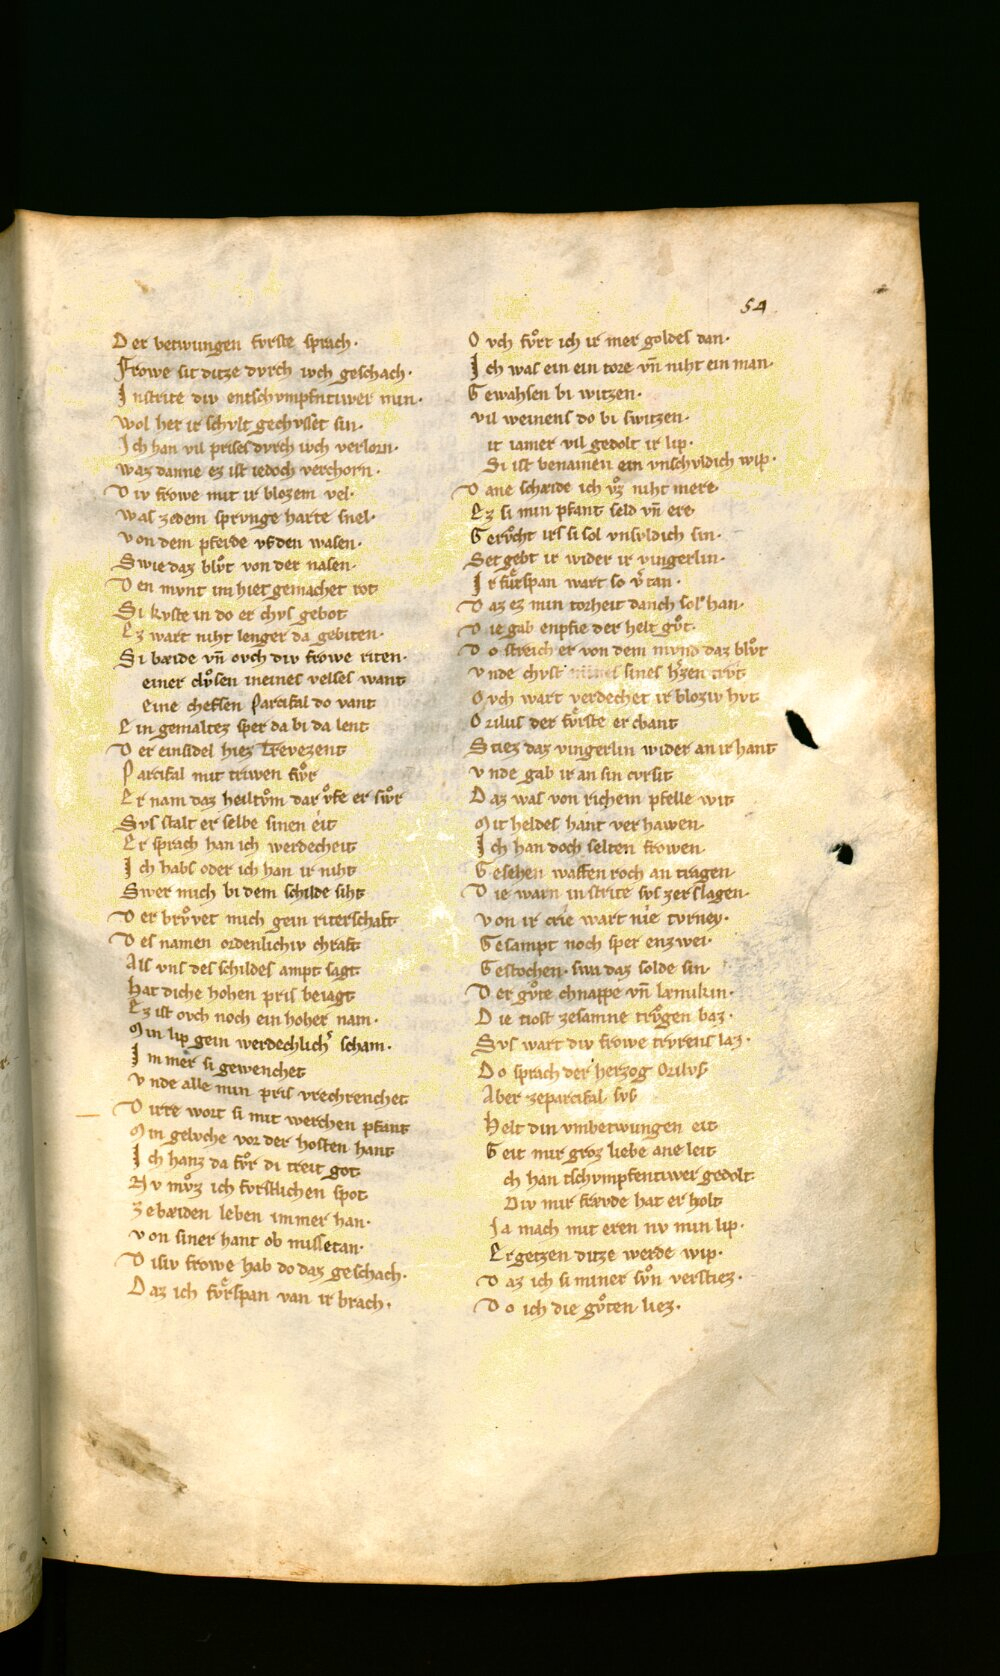 54
Der betwungen fvrste sprach·
Frowe sit ditze dvrch iwch geschach·
In strite div entschvmpfentiwer min·
Wol her ir schvlt gechvsset sin·
Ich han vil prises dvrch iwch verlorn·
Waz danne ez ist iedoch verchorn·
Div frowe mit ir blozem vel·
Was zedem sprvnge harte snel·
Von dem pferde vf den wasen·
Swie daz blvͦt von der nasen·
Den mvnt im hiet gemachet rot
Si kvste in do er chvs gebot
Ez wart niht lenger da gebiten·
Si bæide vn̄ ovch div frowe riten·
einer chlvͦsen in eines velses want
eine chefsen Parcifal do vant
Ein gemaltez sper da bi da lent
Der einsidel hiez Trevezent
Parcifal mit triwen fvͦr
Er nam daz heiltvͦm dar vͦfe er swͦr
Svs stalt er selbe sinen eit
Er sprach han ich werdecheit
Ich habs oder ich han ir niht
Swer mich bi dem schilde siht
Der brvͦvet mich gein riterschaft
Des namen ordenlichiv chraft
Als vns des schildes ampt sagt
Hat diche hohen pris beiagt
Ez ist ovch noch ein hoher nam·
Min lip gein werdechlicher scham·
Immer si gewenchet
Vnde alle min pris vrechrenchet
Dirre wort si mit werchen pfant
Min gelvche vor der hosten hant
Ich hanz da fvͦr di treit got
Nv mvͦz ich fvrstlichen spot
Zebæiden leben immer han·
Von siner hant ob missetan·
Disiv frowe hab do daz geschach·
Daz ich fvͤrspan van ir brach·
Ovch fvͦrt ich ir mer goldes dan·
Ich was ein ein tore vn̄ niht ein man·
Gewahsen bi witzen·
Vil weinens do bi switzen·
ir iamer vil gedolt ir lip·
Si ist benamen ein vnschvldich wip·
Dane schæide ich vͦz niht mere
Ez si min pfant seld vn̄ ere
Gervͦcht irs si sol vnsvldich sin·
Set gebt ir wider ir vingerlin·
Ir fvͤrspan wart so v̓tan·
Daz ez min torheit danch sol han·
Die gab enpfie der helt gvͦt·
Do streich er von dem mvnd daz blvͦt
Vnde chvst sines h̓zen trvͦt
Ovch wart verdechet ir bloziv hvt
Orilus der fvͤrste er chant
Stiez daz vingerlin wider an ir hant
Vnde gab ir an sin cvrsit
Daz was von richem pfelle wit
Mit heldes hant ver hawen·
Ich han doch selten frowen
Gesehen waffen roch an tragen
Die warn in strite svs zer slagen·
Von ir crie wart nie tvrney·
Gesampt noch sper enzwei·
Gestochen· swa daz solde sin·
Der gvͦte chnappe vn̄ læmikin·
Die tiost zesamne trvͦgen baz·
Svs wart div frowe trvrens laz·
Do sprach der herzog Orilvs
Aber zeparcifal svs
Helt din vmbetwungen eit
Geit mir groz liebe ane leit
ch han tschvmpfentiwer gedolt
Div mir frævde hat er holt
Ja mach mit eren nv min lip·
Ergetzen ditze werde wip·
Daz ich si miner svͦn verstiez·
Do ich die gvͦten liez·